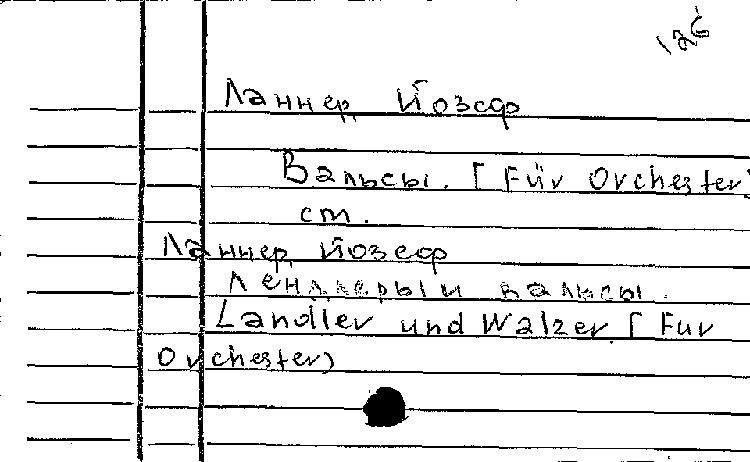 126
Ланнер, Йозеф
Вальсы. [Für Orchester]
ст.
Ланнер, Йозеф
Лендлеры и вальсы.
Ländler und Walzer. [Fur
Orchester)